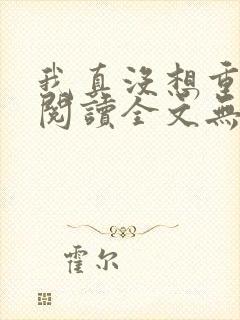 我真沒想重
閱讀全文無
霍尔